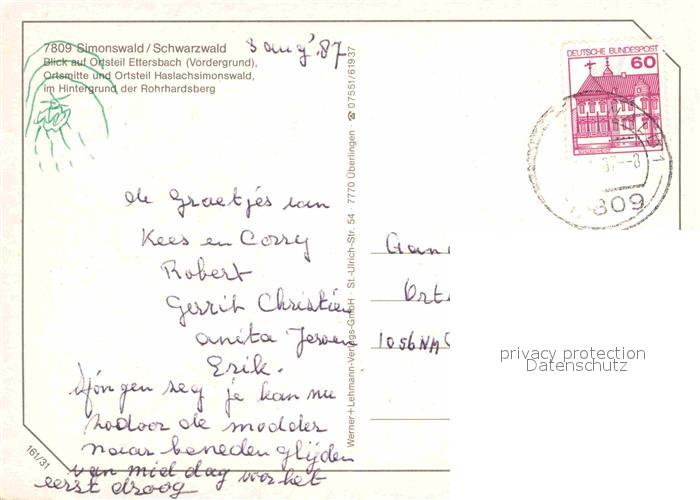 7809 Simonswald / Schwarzwald
Blick auf Ortsteil Ettersbach (Vordergrund),
Ortsmitte und Ortsteil Haslachsimonswald,
im Hintergrund der Rohrhardsberg
3 aug '87
DEUTSCHE BUNDESPOST
60
809
de Groetjes van
Kees en Corry
Robert
Gerrit Christien
anita Jeroen
Erik.
Jongen zeg je kan nu
zodoor de modder
naar beneden glijden
van middag voor het
eerst droog
Werner+Lehmann-Verlags-GmbH · St.-Ulrich-Str. 54 · 7770 Überlingen · ☎ 07551/61937
1056NM
privacy protection
Datenschutz
161/31